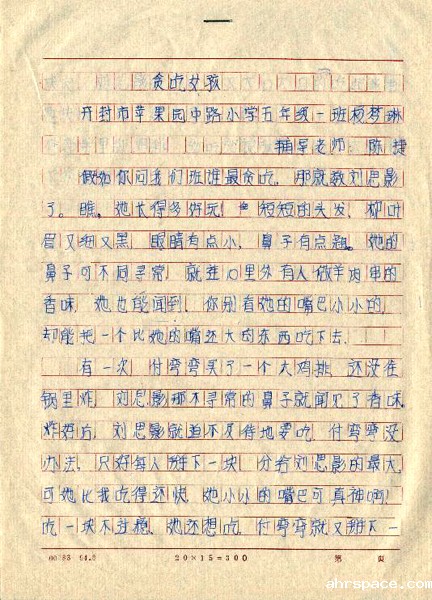 贪吃女孩
开封市苹果园中路小学五年级一班杨琴琳
辅导老师：陈捷
假如你问我们班谁最贪吃，那就数刘思影
了。瞧，她长得多好玩！短短的头发，柳叶
眉又细又黑，眼睛有点小，鼻子有点翘。她的
鼻子可不同寻常，就连10里外有人做羊肉串的
香味，她也能闻到。你别看她的嘴巴小小的，
却能把一个比她的嘴还大的东西吃下去。
有一次，付弯弯买了一个大鸡排，还没在
锅里炸，刘思影那不寻常的鼻子就闻见了香味。
炸好后，刘思影就迫不及待地要吃，付弯弯没
办法，只好每人掰下一块，分给刘思影的最大，
可她比我吃得还快，她小小的嘴巴可真神啊！
吃一块不过瘾，她还想吃，付弯弯就又掰下一
20×15=300
第 页
ahrspace.com